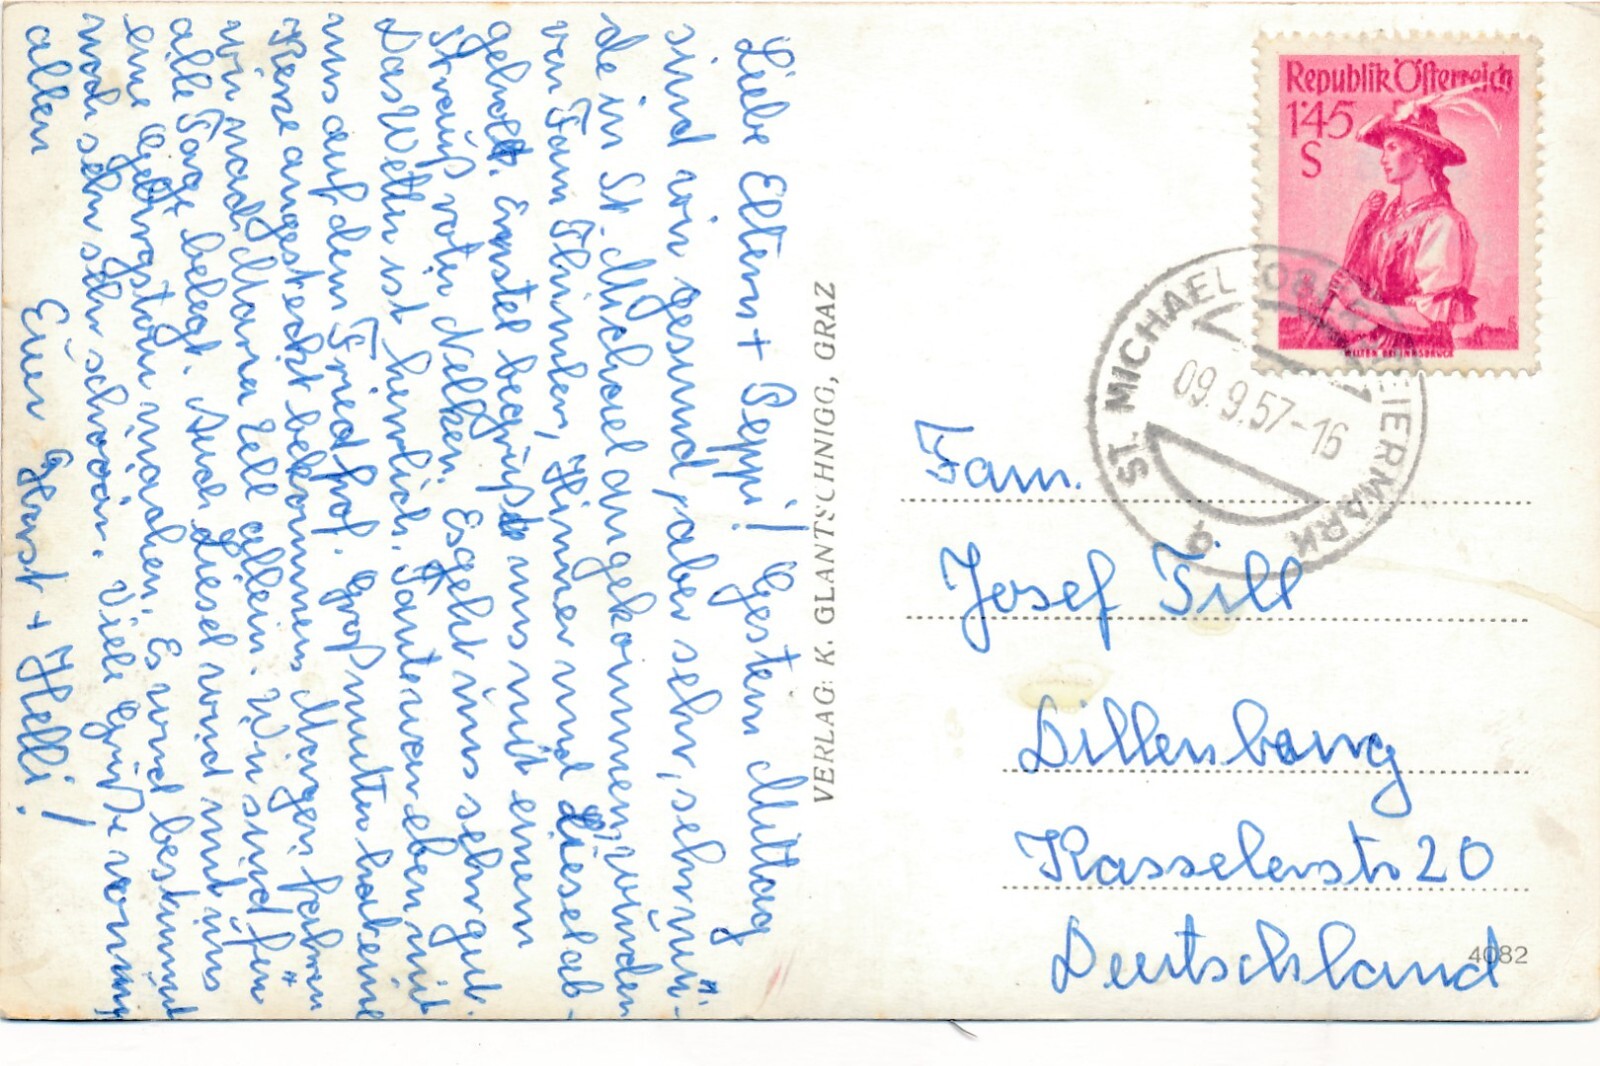 Liebe Eltern + Peppi! Gestern Mittag
sind wir gesund, aber sehr, sehr mü-
de in St. Michael angekommen, wurden
von Fam Flimler, Hinner und Liesel ab-
geholt. Ernstel begrüßte uns mit einem
Strauß roter Nelken. Es geht uns sehr gut.
Das Wetter ist herrlich. Tante war eben mit
uns auf dem Friedhof. Großmutter hat eine
Kerze angesteckt bekommen. Morgen fahren
wir nach Maria Zell allein. Wir sind für
alle Tage belegt. Auch Liesel wird mit uns
eine Gebirgstour machen. Es wird bestimmt
noch sehr sehr schön. Viele Grüße
allen
Eure Horst + Helli!
VERLAG: K. GLANTSCHNIGG, GRAZ
Republik Österreich
1·45
S
WILTEN BEI INNSBRUCK
ST. MICHAEL OBERSTEIERMARK
09.9.57-16
9
Fam.
Josef Till
Dillenburg
Kasselerstr 20
Deutschland
4082